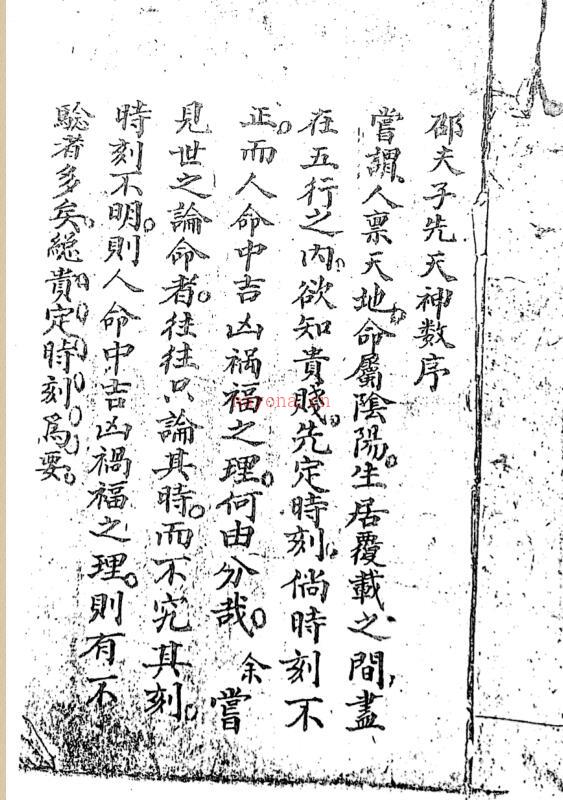 邵夫子先天神数序
嘗謂人禀天地。命屬陰陽。生居覆載之間，盡
在五行之内。欲知貴賤。先定時刻。倘時刻不
正。而人命中吉凶禍福之理。何由分哉。余嘗
見世之論命者。往往只論其時。而不究其刻。
時刻不明。則人命中吉凶禍福之理。則有不
驗者多矣。總貴定時刻爲要。